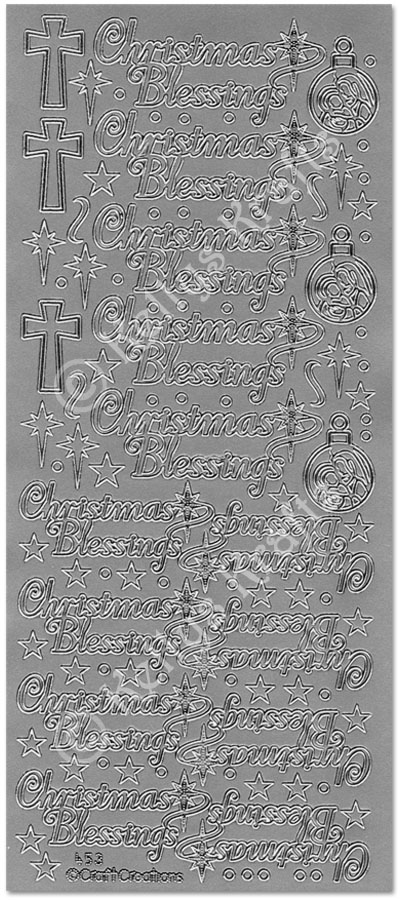 Christmas
Blessings
Christmas
Blessings
Christmas
Blessings
Christmas
Blessings
Christmas
Blessings
Christmas
Blessings
Christmas
Blessings
Christmas
Blessings
Christmas
Blessings
Christmas
Blessings
Christmas
Blessings
Christmas
Blessings
Christmas
Blessings
453
©Craft Creations
© Kellys Krafts
© Kellys Krafts